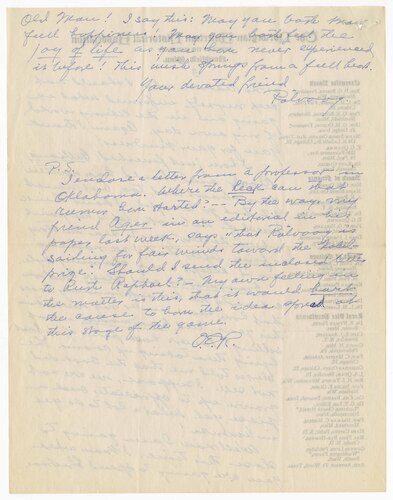 Old Man! I say this: May you both
full happiness. May you both feel the
joy of life as you have never experienced
is before! This wish springs from a full heart.
Your devoted friend
P.S.
I enclose a letter from a professor in
Oklahoma. Where the heck can that
rumor have started? -- By the way, my
friend Ager in an editorial in his
paper last week, says that Rolvaag is
sailing for fair winds toward the
prize. Should I send the inclosed
to Ruth Raphael? - My own feeling
the matter is this, that it would hurt
the cause to have the idea spread at
this stage of the game.
O.E.R.